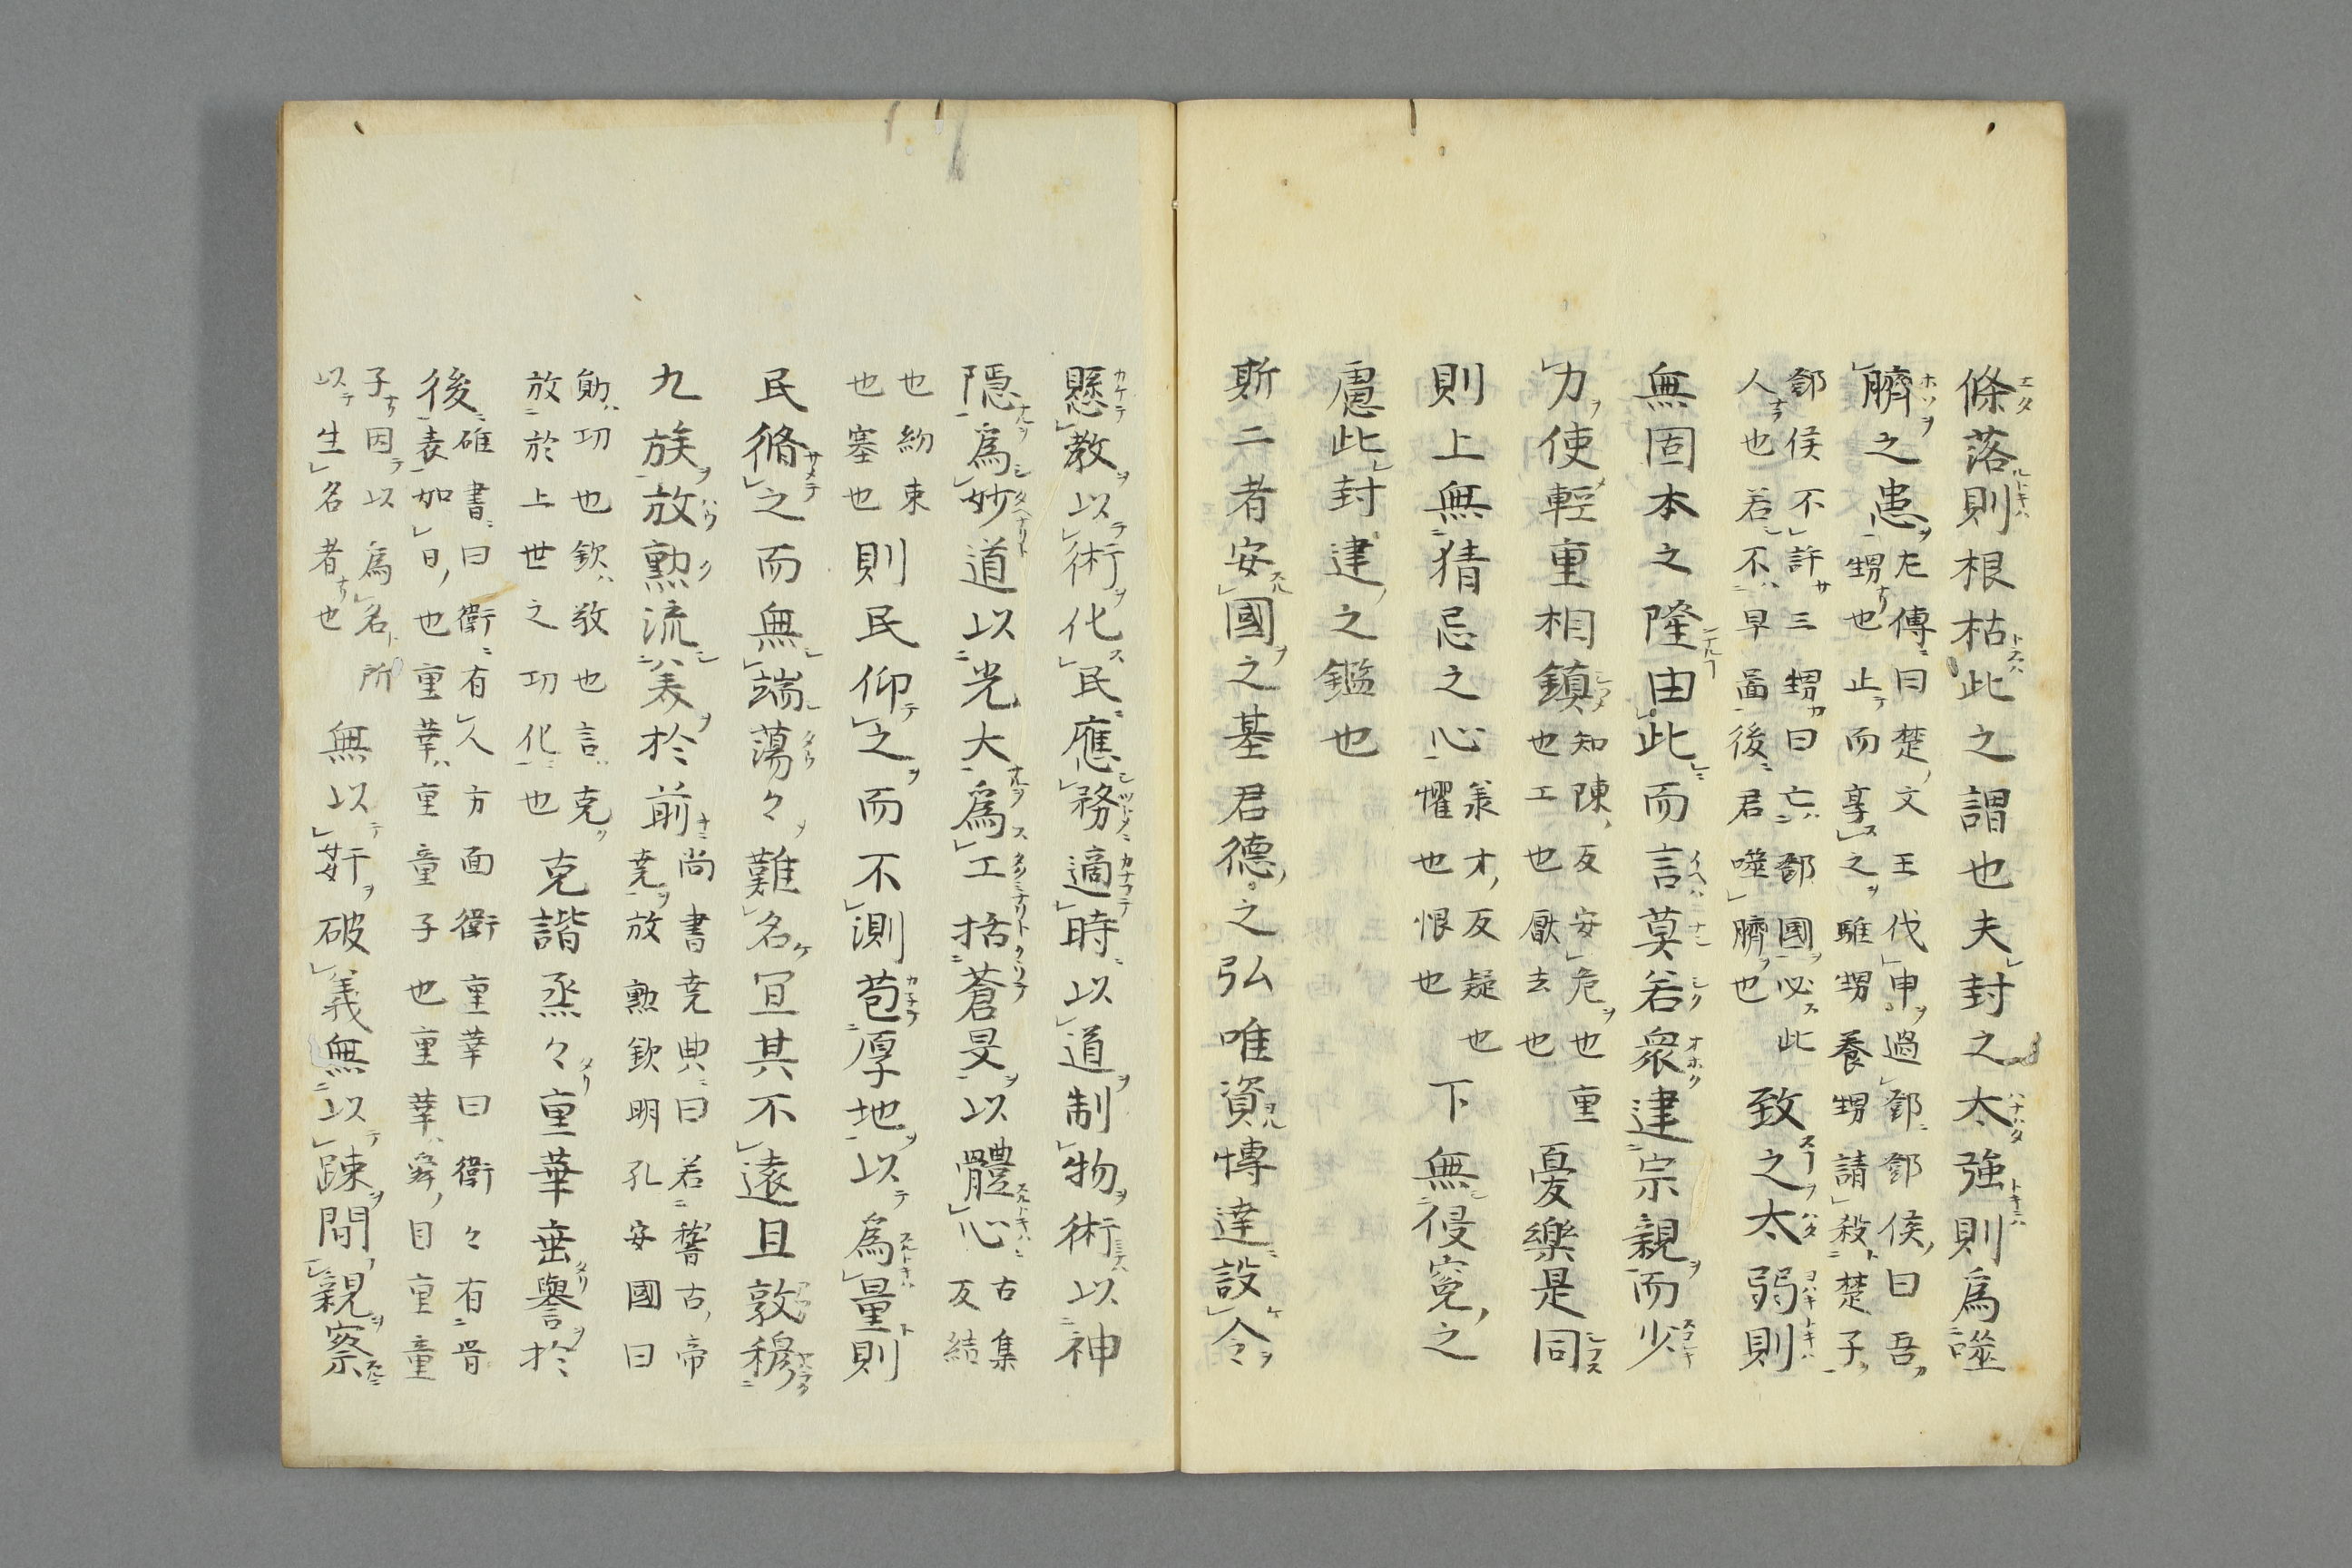 條落則根枯此之謂也夫封之太強則爲噬
臍之患
左傳曰楚文王伐申過鄧鄧侯曰吾
甥也止而享之騅甥養甥請殺楚子
鄧侯不許三甥曰亡鄧國必此
人也若不早畐後君噬臍也
致之太弱則
無固本之隆由此而言莫若衆建宗親而少
力使輕重相鎮
知陳反安危也重
也工也厭去也
憂樂是同
則上無猜忌之心
才反疑也
懼也恨也
下無侵寃之
慮此封建之鑑也
斯二者安國之基君德之弘唯資博達設令
懸教以術化民應務適時以道制物術以神
隠爲妙道以光大爲工括蒼旻以體心
古集
反結
也紛束
也塞也
則民仰之而不測苞厚地以爲量則
民脩之而無端蕩々難名宜其不遠且敦穆
九族放勲流美於前
尚書堯典曰若稽古帝
堯放勲欽明孔安國曰
勛功也欽敬也言克
放於上世之功化也
克諧烝々重華垂譽於
後
碓書曰衛有人方面衛重華曰衛々有骨
表如日也重華重童子也重華舜目重童
子因以爲名所
以生名者也
無以奸破義無以踈間親察